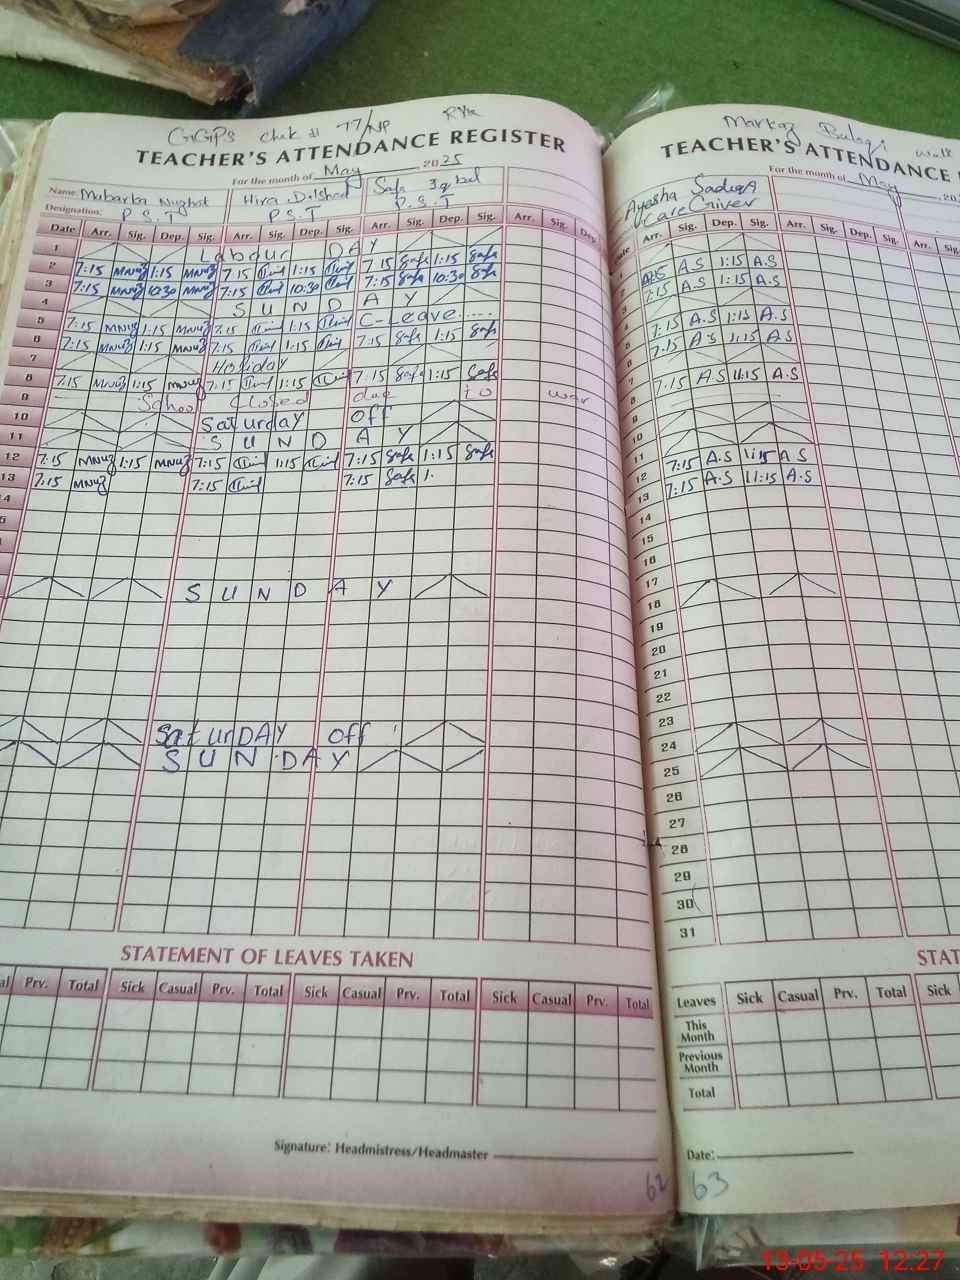 GGPS Chak # 77/NP RYK
TEACHER'S ATTENDANCE REGISTER
For the month of May 2025
Name Mubarka Nughat Hira Dilshad Safs Iqbal
Designation: P.S.T P.S.T P.S.T
Date Arr. Sig. Dep. Sig. Arr. Sig. Dep. Sig. Arr. Sig. Dep. Sig. Arr. Sig. Dep.
1 Labour DAY
2 7:15 MNug 1:15 MNug 7:15 1:15 7:15 Safs 1:15 Safs
3 7:15 MNug 10:30 MNug 7:15 10:30 7:15 Safs 10:30 Safs
4 S U N D A Y
5 7:15 MNug 1:15 MNug 7:15 1:15 C-Leave.....
6 7:15 MNug 1:15 MNug 7:15 1:15 7:15 Safs 1:15 Safs
7 Holiday
8 7:15 MNug 1:15 MNug 7:15 1:15 7:15 Safs 1:15 Safs
9 School Closed due to war
10 Saturday off
11 S U N D A Y
12 7:15 MNug 1:15 MNug 7:15 1:15 7:15 Safs 1:15 Safs
13 7:15 MNug 7:15 7:15 Safs 1.
14
S U N D A Y
SaturDAY off
S U N DAY
STATEMENT OF LEAVES TAKEN
Prv. Total Sick Casual Prv. Total Sick Casual Prv. Total Sick Casual Prv. Total
Signature: Headmistress/Headmaster
62
Markaz
TEACHER'S ATTENDANCE
For the month of May
Ayesha Sadiqa
Care Giver
Arr. Sig. Dep. Sig. Arr. Sig. Dep. Sig. Arr. Sig.
A.S 1:15 A.S
7:15 A.S 1:15 A.S
7:15 A.S 1:15 A.S
7:15 A.S 1:15 A.S
7:15 A.S 11:15 A.S
8
9
10
11 7:15 A.S 1:15 A.S
12 7:15 A.S 11:15 A.S
13
14
15
16
17
18
19
20
21
22
23
24
25
26
27
28
29
30
31
Leaves Sick Casual Prv. Total Sick
This Month
Previous Month
Total
Date:
63
13-05-25 12:27